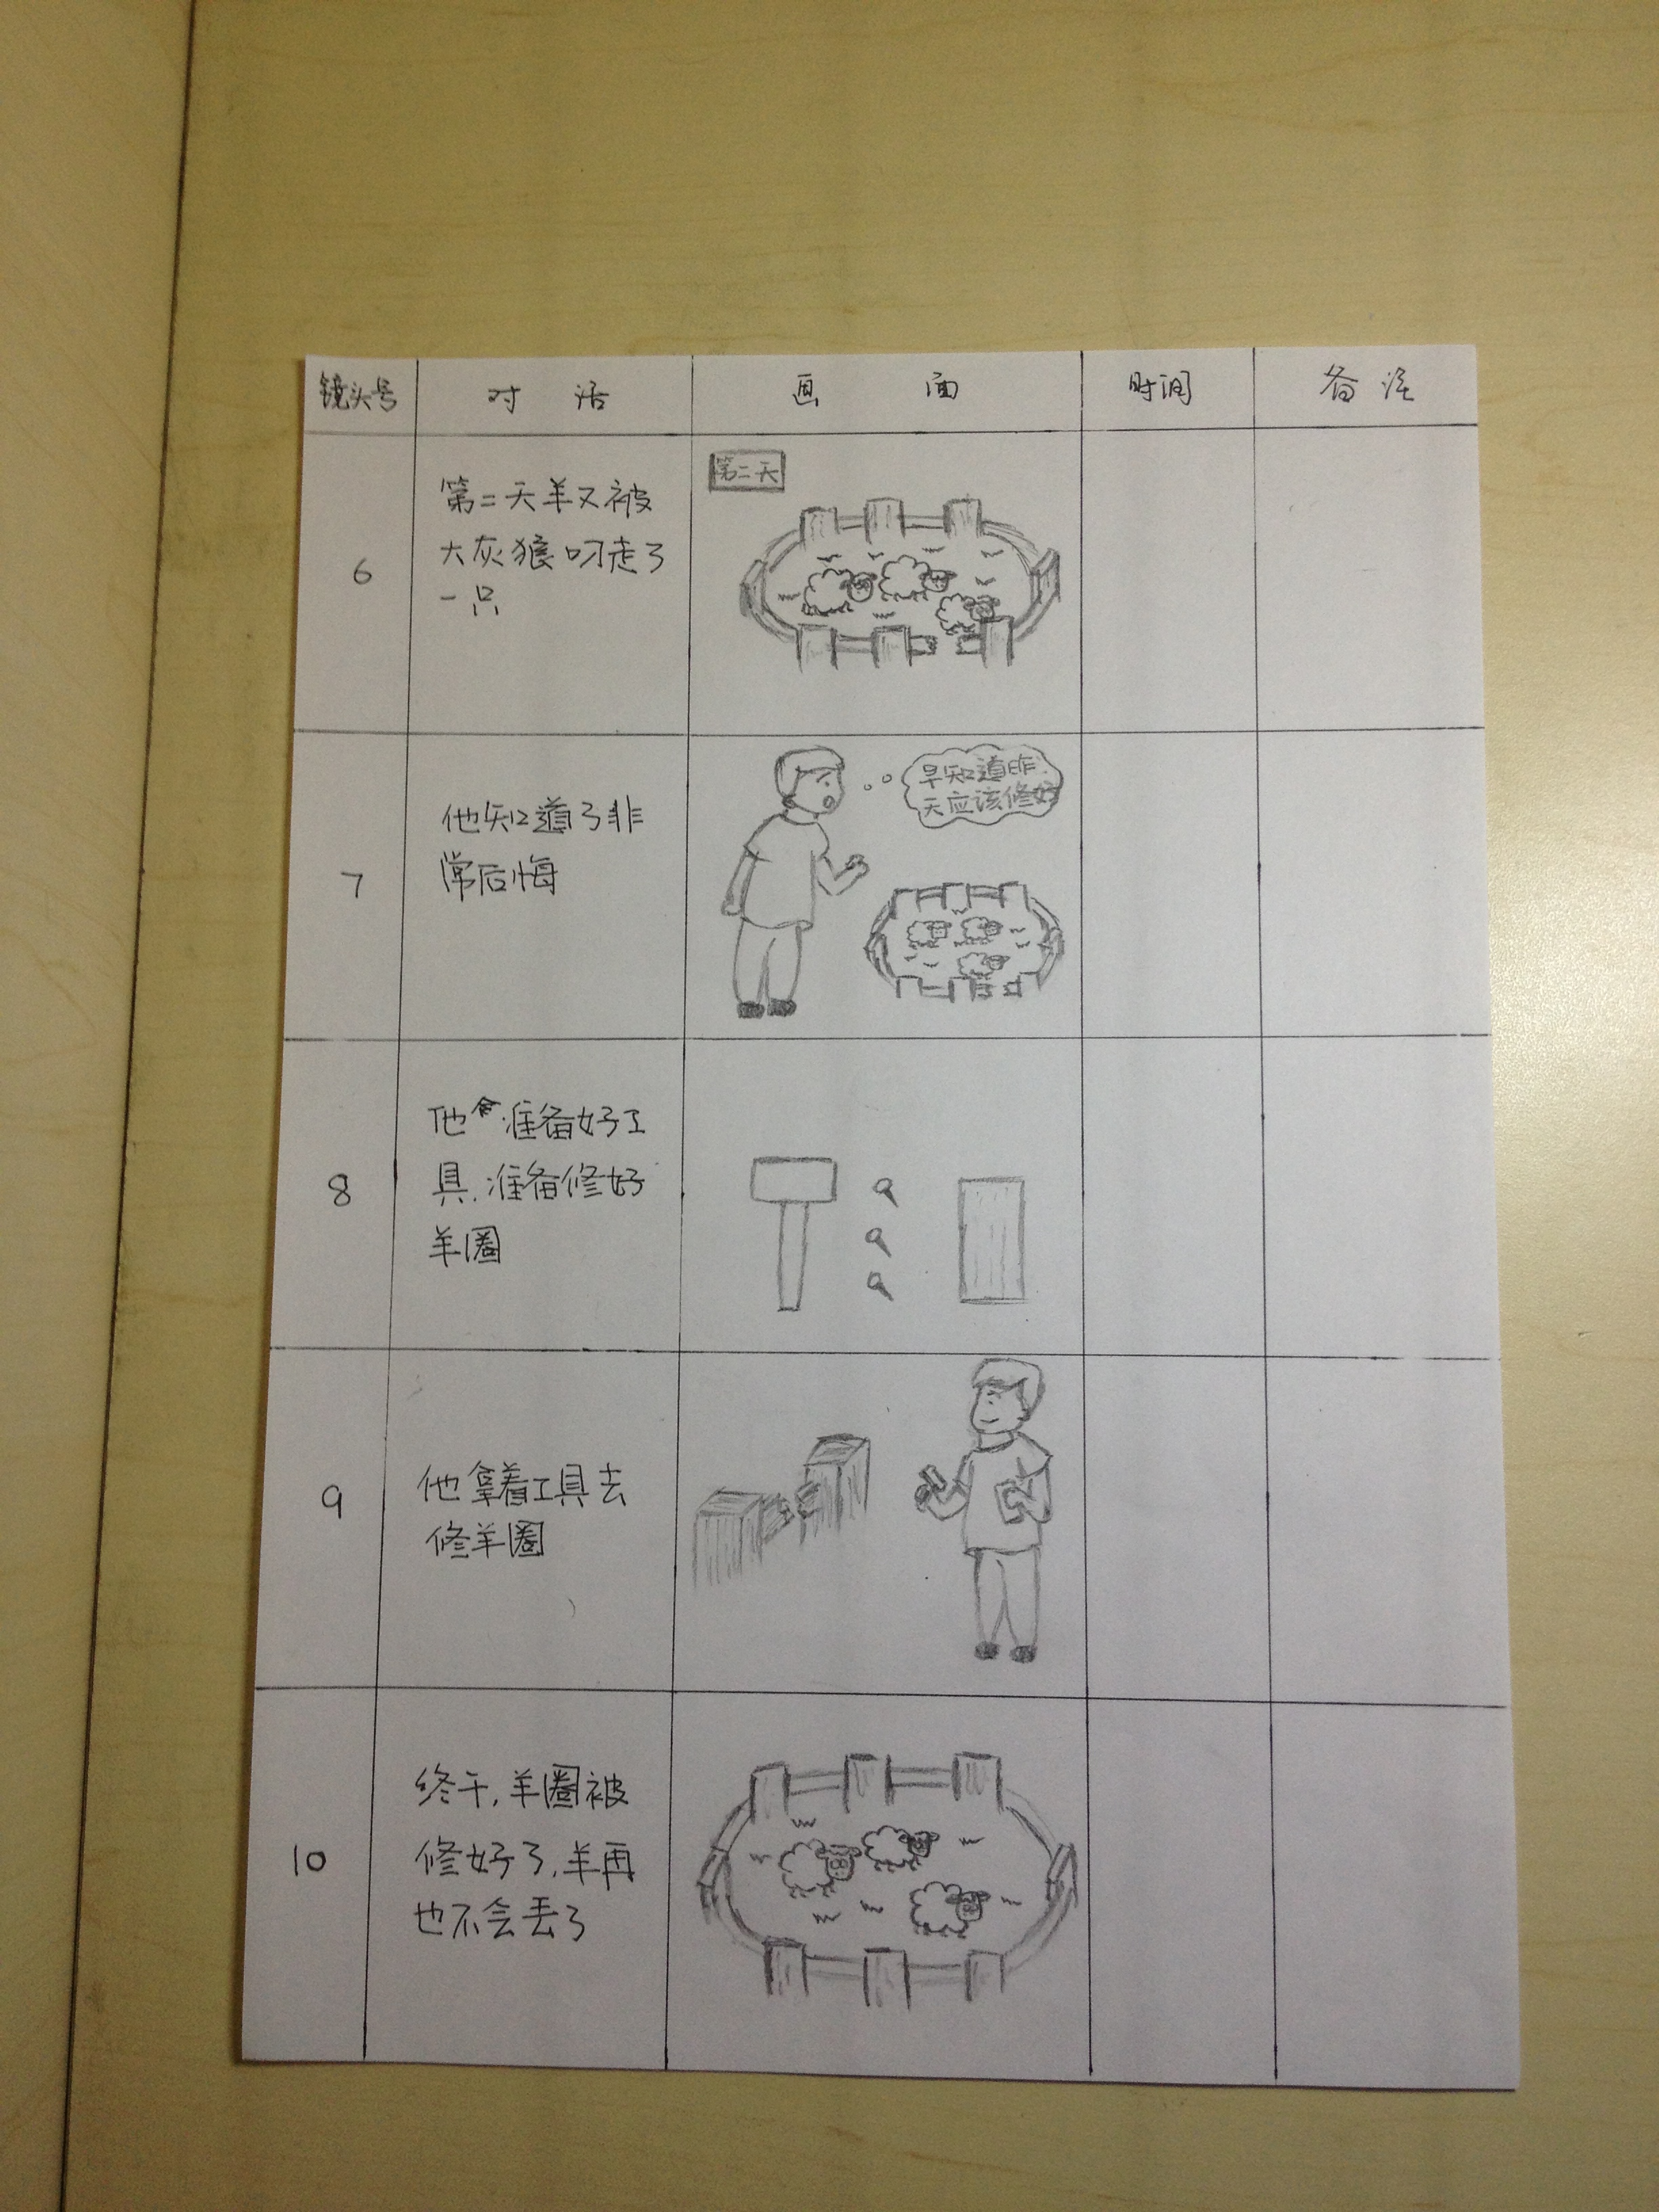 镜头号 对话 画面 时间 备注
6
第二天羊又被
大灰狼叼走了
一只
第二天
7
他知道了非
常后悔
早知道昨
天应该修好
8
他准备好工
具,准备修好
羊圈
9
他拿着工具去
修羊圈
10
终于,羊圈被
修好了,羊再
也不会丢了